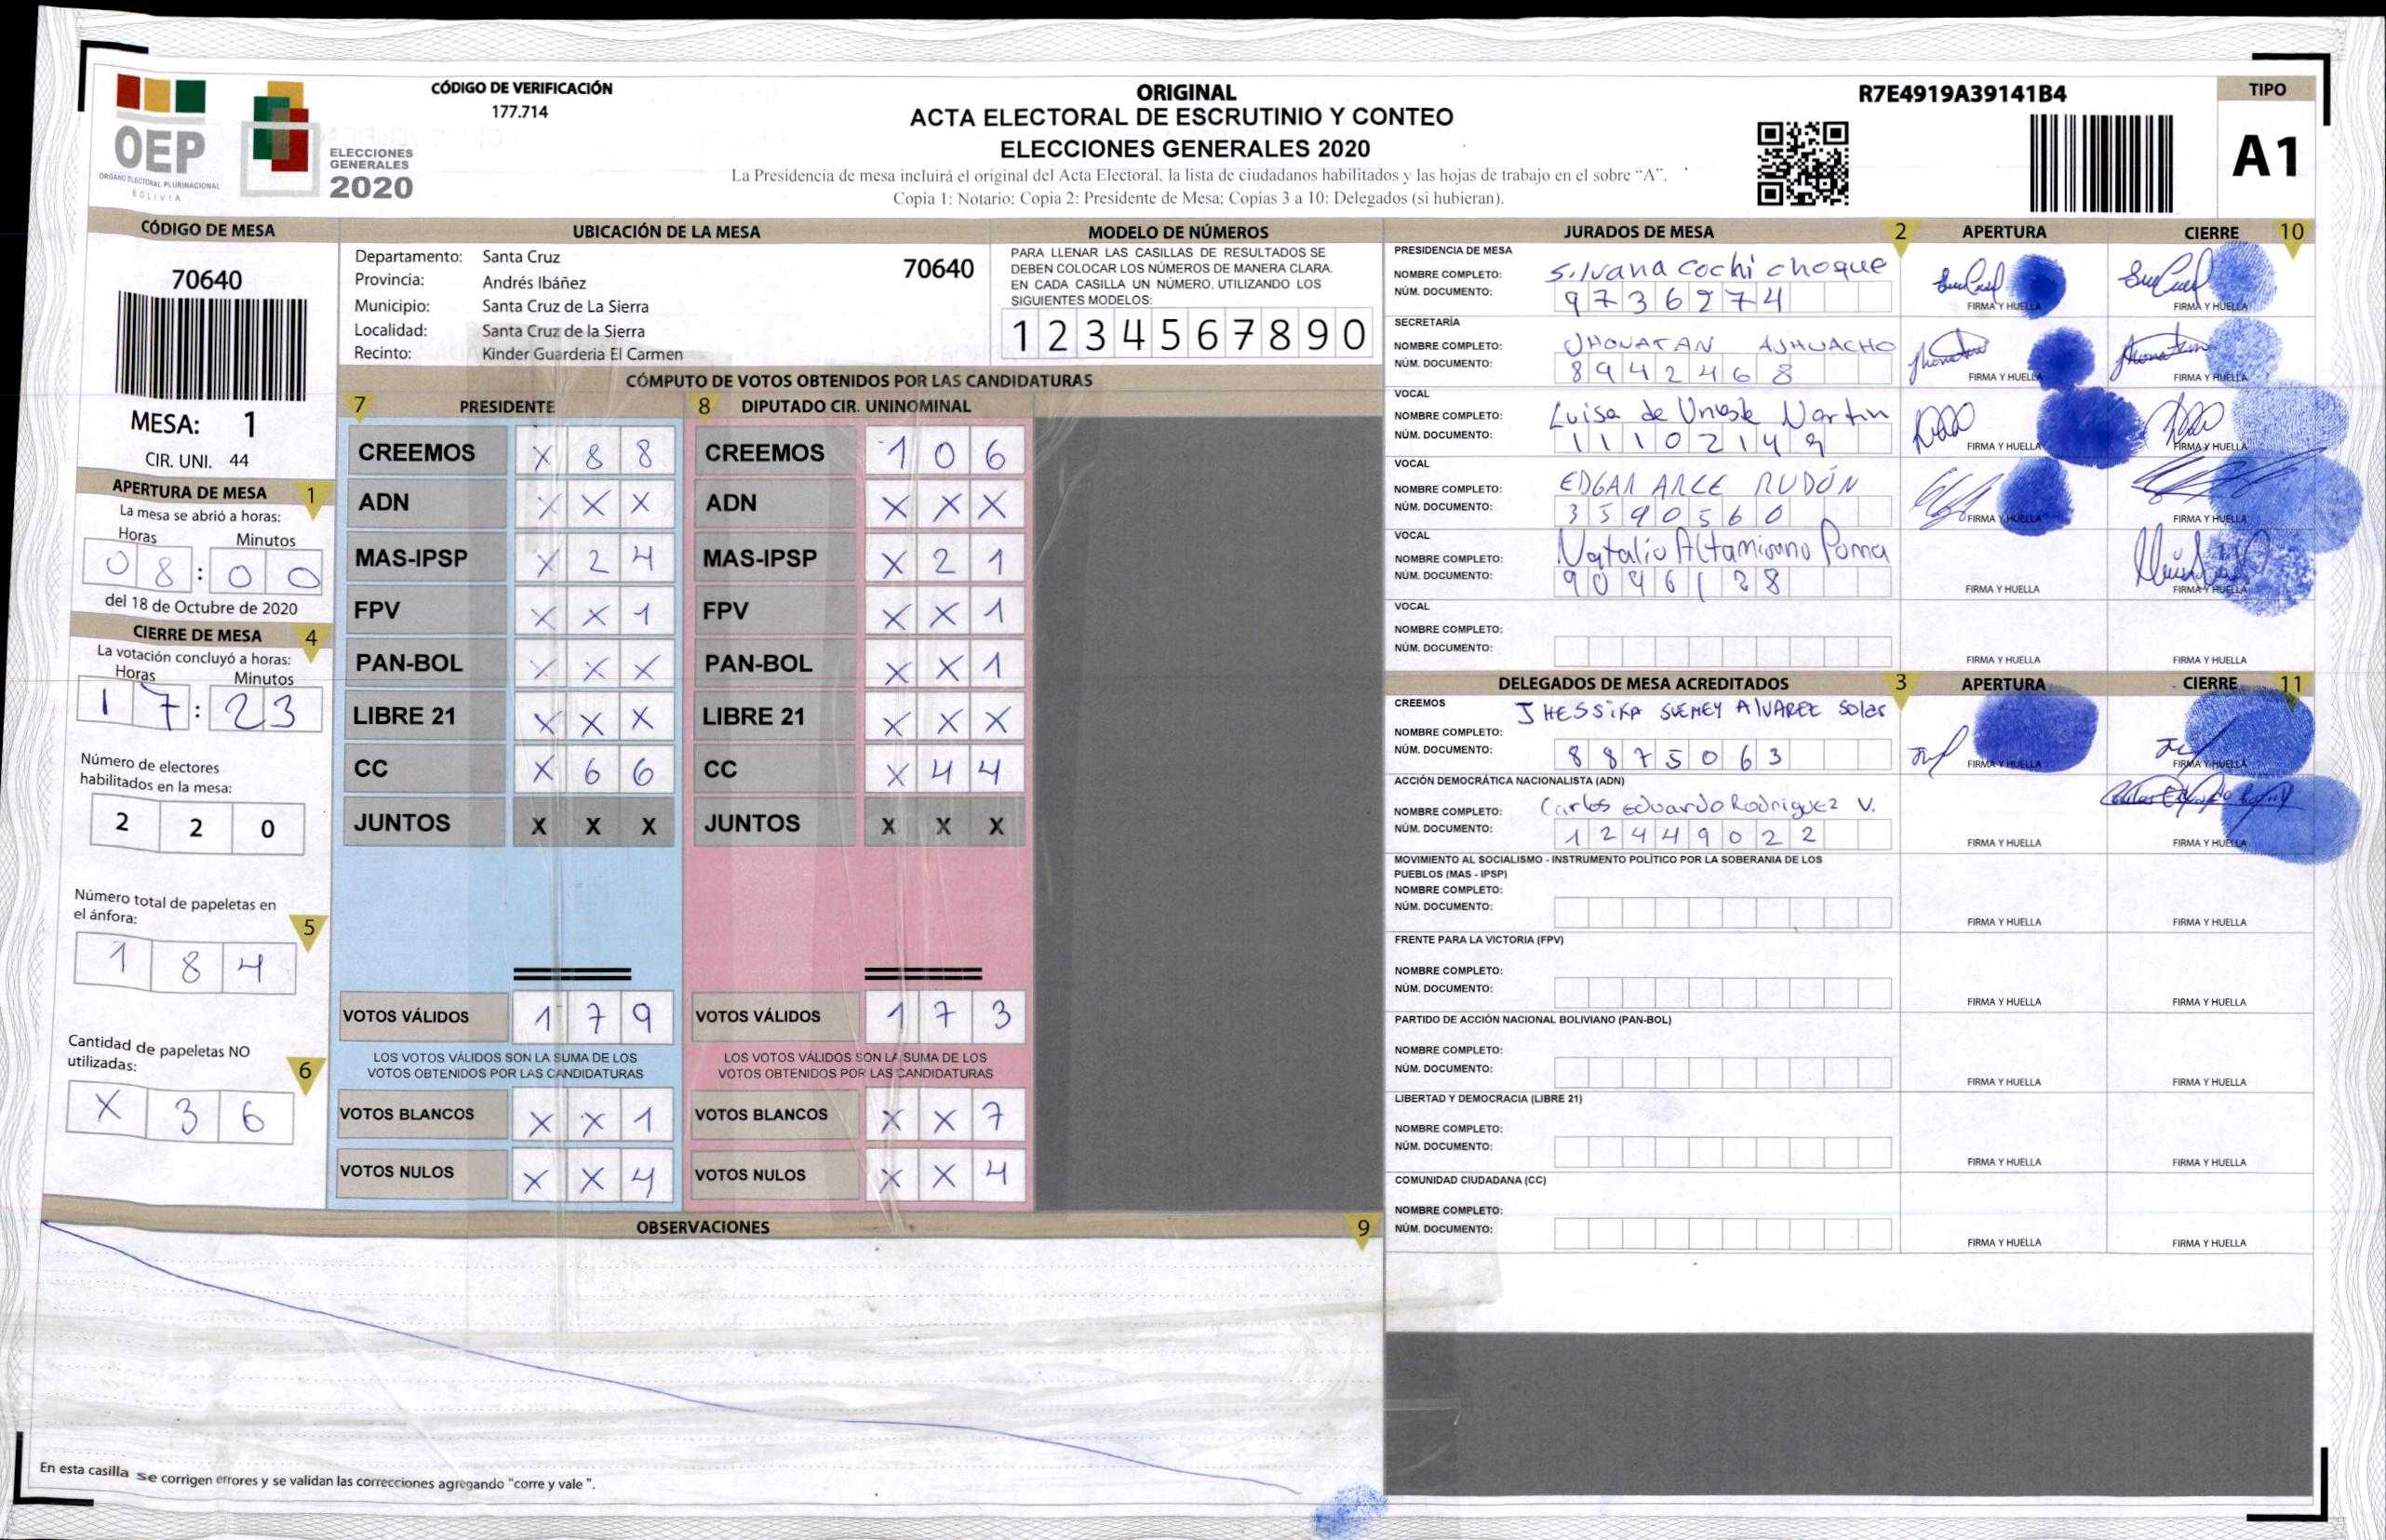 CÓDIGO DE VERIFICACIÓN
177.714
OEP
ÓRGANO ELECTORAL PLURINACIONAL
BOLIVIA
ELECCIONES
GENERALES
2020
ORIGINAL
ACTA ELECTORAL DE ESCRUTINIO Y CONTEO
ELECCIONES GENERALES 2020
La Presidencia de mesa incluirá el original del Acta Electoral, la lista de ciudadanos habilitados y las hojas de trabajo en el sobre “A”.
Copia 1: Notario; Copia 2: Presidente de Mesa; Copias 3 a 10: Delegados (si hubieran).
R7E4919A39141B4
TIPO
A1
CÓDIGO DE MESA
70640
MESA: 1
CIR. UNI. 44
APERTURA DE MESA 1
La mesa se abrió a horas:
Horas Minutos
08:00
del 18 de Octubre de 2020
CIERRE DE MESA 4
La votación concluyó a horas:
Horas Minutos
17:23
Número de electores
habilitados en la mesa:
2 2 0
Número total de papeletas en
el ánfora: 5
1 8 4
Cantidad de papeletas NO
utilizadas: 6
X 3 6
UBICACIÓN DE LA MESA
Departamento: Santa Cruz 70640
Provincia: Andrés Ibáñez
Municipio: Santa Cruz de La Sierra
Localidad: Santa Cruz de la Sierra
Recinto: Kinder Guarderia El Carmen
MODELO DE NÚMEROS
PARA LLENAR LAS CASILLAS DE RESULTADOS SE
DEBEN COLOCAR LOS NÚMEROS DE MANERA CLARA.
EN CADA CASILLA UN NÚMERO, UTILIZANDO LOS
SIGUIENTES MODELOS:
1 2 3 4 5 6 7 8 9 0
CÓMPUTO DE VOTOS OBTENIDOS POR LAS CANDIDATURAS
7 PRESIDENTE 8 DIPUTADO CIR. UNINOMINAL
CREEMOS X 8 8 CREEMOS 1 0 6
ADN X X X ADN X X X
MAS-IPSP X 2 4 MAS-IPSP X 2 1
FPV X X 1 FPV X X 1
PAN-BOL X X X PAN-BOL X X 1
LIBRE 21 X X X LIBRE 21 X X X
CC X 6 6 CC X 4 4
JUNTOS X X X JUNTOS X X X
VOTOS VÁLIDOS 1 7 9 VOTOS VÁLIDOS 1 7 3
LOS VOTOS VÁLIDOS SON LA SUMA DE LOS LOS VOTOS VÁLIDOS SON LA SUMA DE LOS
VOTOS OBTENIDOS POR LAS CANDIDATURAS VOTOS OBTENIDOS POR LAS CANDIDATURAS
VOTOS BLANCOS X X 1 VOTOS BLANCOS X X 7
VOTOS NULOS X X 4 VOTOS NULOS X X 4
OBSERVACIONES 9
En esta casilla se corrigen errores y se validan las correcciones agregando "corre y vale ".
JURADOS DE MESA 2 APERTURA CIERRE 10
PRESIDENCIA DE MESA
NOMBRE COMPLETO: Silvana cochi choque
NÚM. DOCUMENTO: 9736274
FIRMA Y HUELLA FIRMA Y HUELLA
SECRETARÍA
NOMBRE COMPLETO: JHONATAN AJHUACHO
NÚM. DOCUMENTO: 8942468
FIRMA Y HUELLA FIRMA Y HUELLA
VOCAL
NOMBRE COMPLETO: Luisa de
NÚM. DOCUMENTO: 11102149
FIRMA Y HUELLA FIRMA Y HUELLA
VOCAL
NOMBRE COMPLETO: EDGAR ARCE RUDÓN
NÚM. DOCUMENTO: 3590560
FIRMA Y HUELLA FIRMA Y HUELLA
VOCAL
NOMBRE COMPLETO: Natalio Altamirano Poma
NÚM. DOCUMENTO: 9046128
FIRMA Y HUELLA FIRMA Y HUELLA
VOCAL
NOMBRE COMPLETO:
NÚM. DOCUMENTO:
FIRMA Y HUELLA FIRMA Y HUELLA
DELEGADOS DE MESA ACREDITADOS 3 APERTURA CIERRE 11
CREEMOS JHESSIKA SUEHEY ALVAREZ Soler
NOMBRE COMPLETO:
NÚM. DOCUMENTO: 8875063
FIRMA Y HUELLA FIRMA Y HUELLA
ACCIÓN DEMOCRÁTICA NACIONALISTA (ADN)
NOMBRE COMPLETO: Carlos Eduardo Rodriguez V.
NÚM. DOCUMENTO: 12449022
FIRMA Y HUELLA FIRMA Y HUELLA
MOVIMIENTO AL SOCIALISMO - INSTRUMENTO POLÍTICO POR LA SOBERANIA DE LOS
PUEBLOS (MAS - IPSP)
NOMBRE COMPLETO:
NÚM. DOCUMENTO:
FIRMA Y HUELLA FIRMA Y HUELLA
FRENTE PARA LA VICTORIA (FPV)
NOMBRE COMPLETO:
NÚM. DOCUMENTO:
FIRMA Y HUELLA FIRMA Y HUELLA
PARTIDO DE ACCIÓN NACIONAL BOLIVIANO (PAN-BOL)
NOMBRE COMPLETO:
NÚM. DOCUMENTO:
FIRMA Y HUELLA FIRMA Y HUELLA
LIBERTAD Y DEMOCRACIA (LIBRE 21)
NOMBRE COMPLETO:
NÚM. DOCUMENTO:
FIRMA Y HUELLA FIRMA Y HUELLA
COMUNIDAD CIUDADANA (CC)
NOMBRE COMPLETO:
NÚM. DOCUMENTO:
FIRMA Y HUELLA FIRMA Y HUELLA